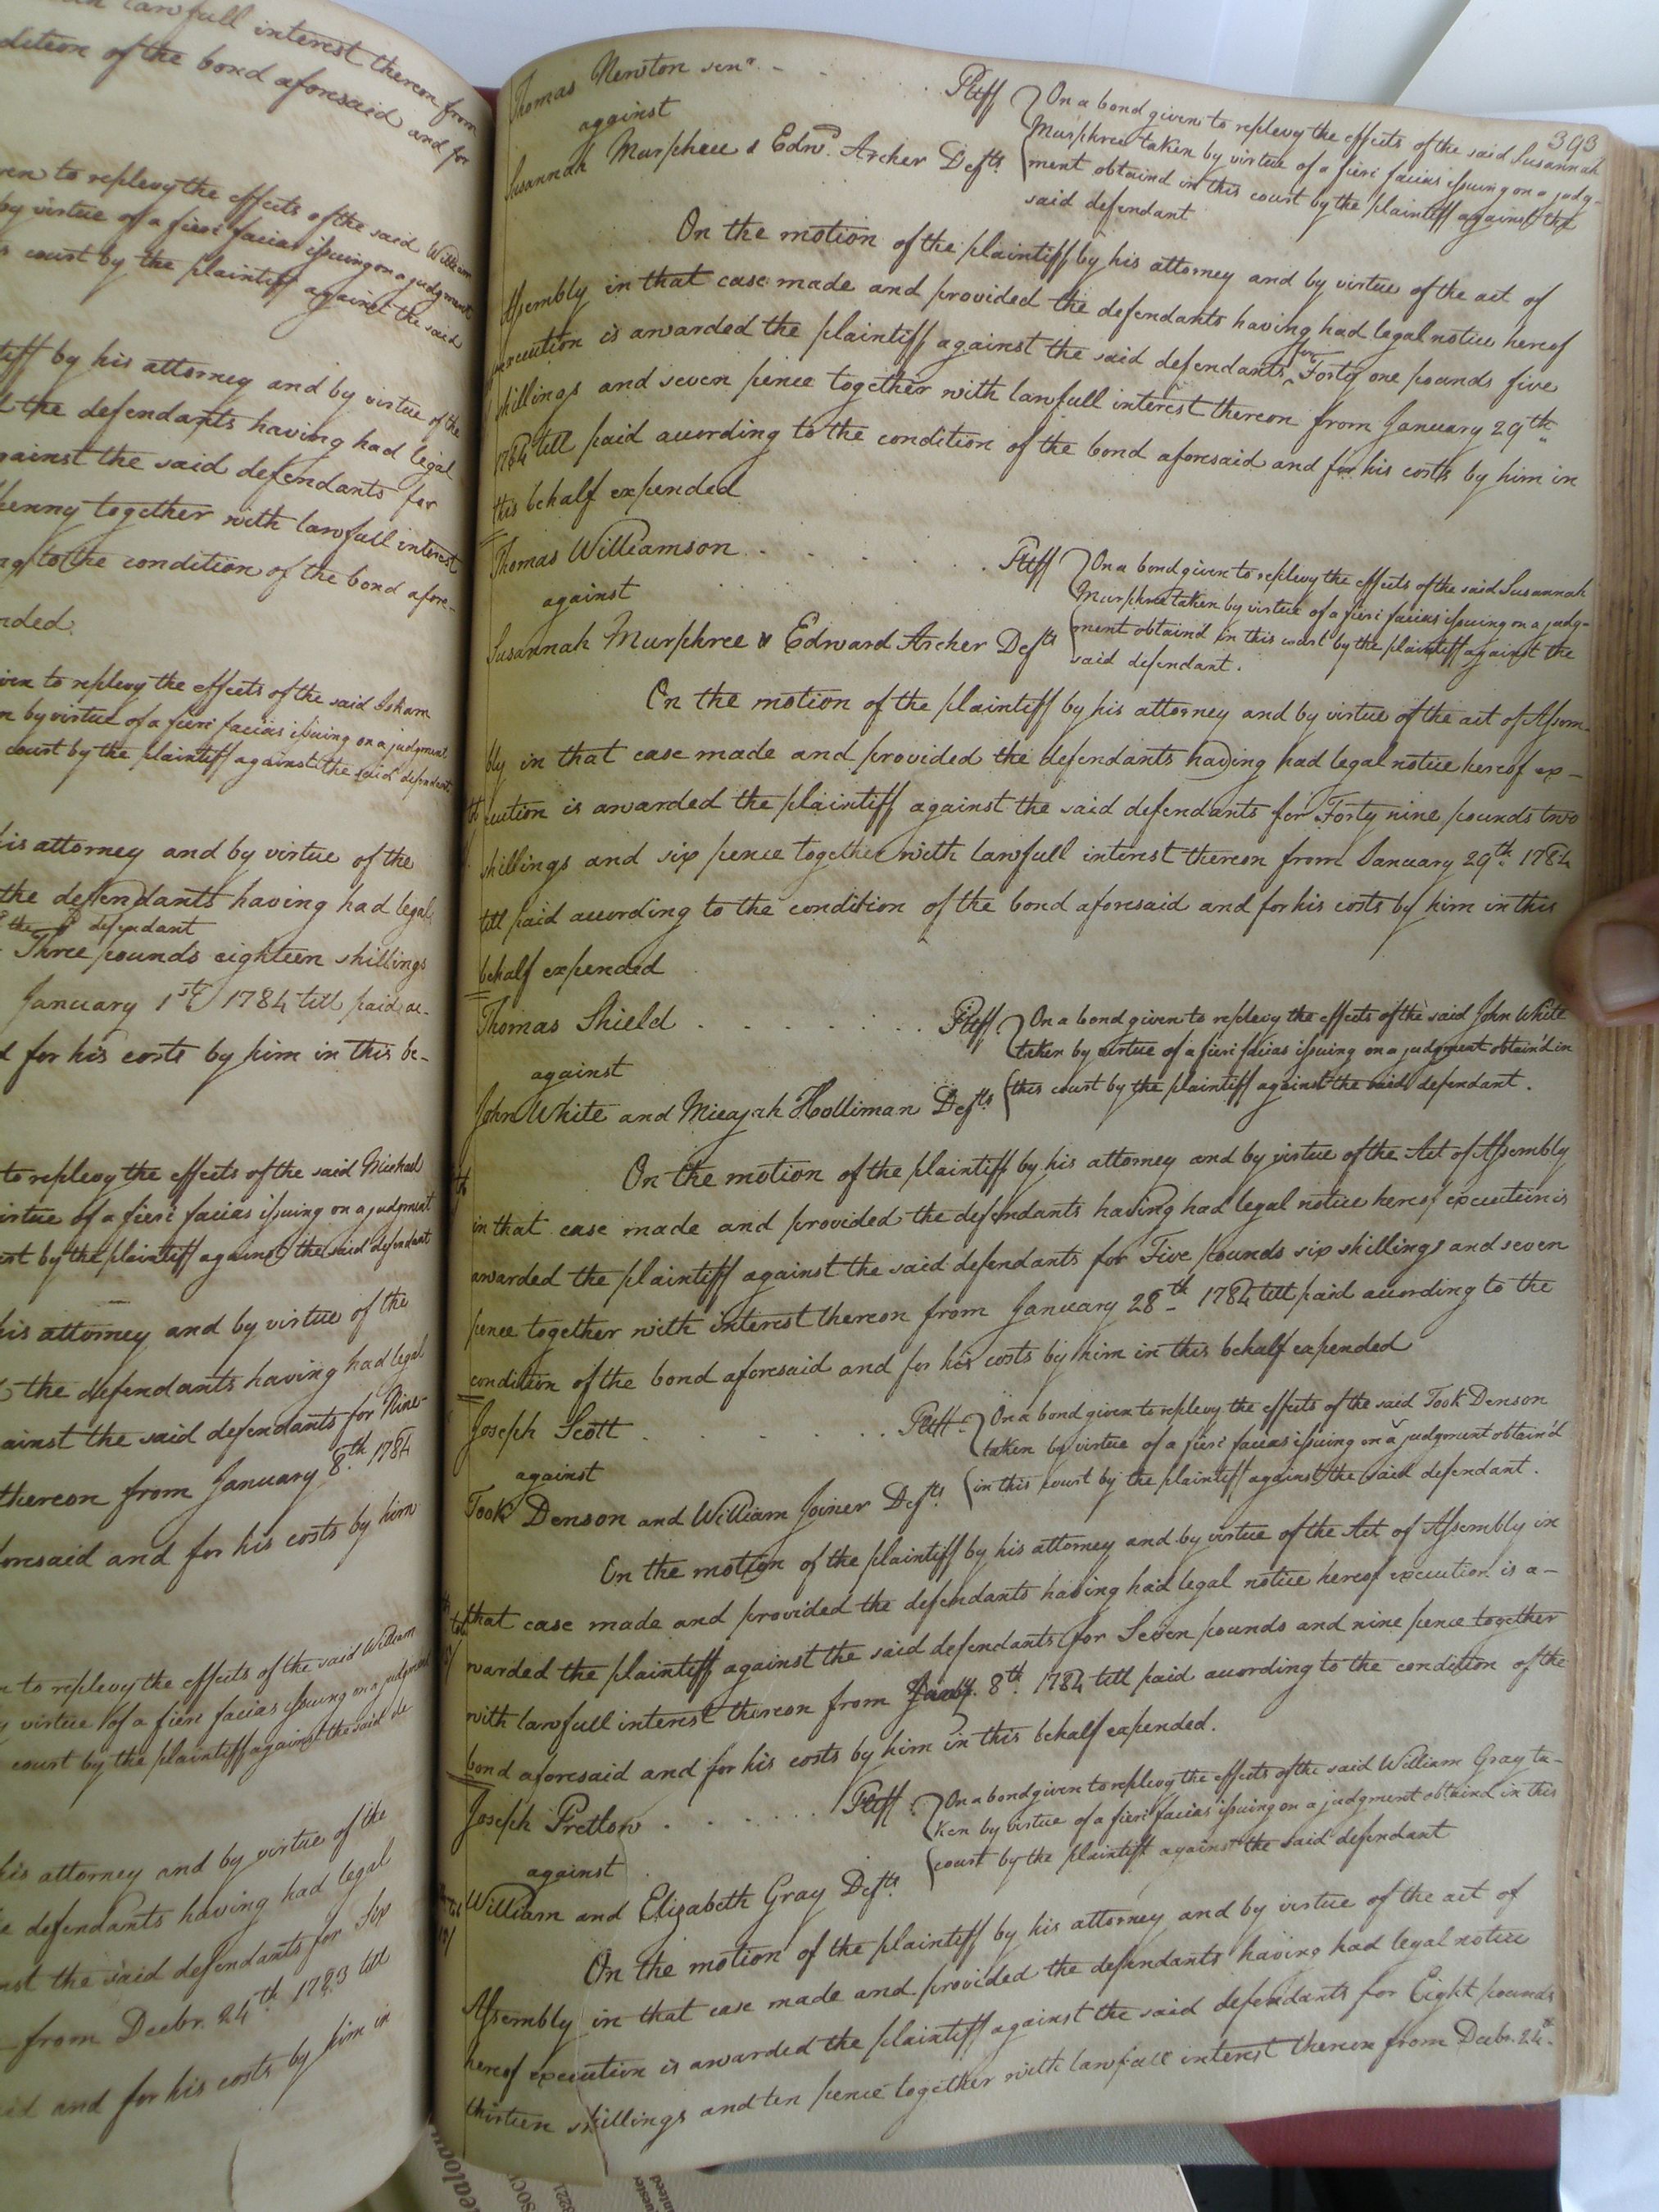 lawfull interest thereon from
dition of the bond aforesaid and for
ven to replevy the effects of the said William
by virtue of a fieri facias issuing on a judgment
s court by the plaintiff against the said
tiff by his attorney and by virtue of the
the defendants having had legal
gainst the said defendants for
penny together with lawfull interest
ng to the condition of the bond afore-
nded.
ven to replevy the effects of the said Isham
n by virtue of a fieri facias issuing on a judgment
court by the plaintiff against the said defendant
his attorney and by virtue of the
the defendants having had legal
the defendant
Three pounds eighteen shillings
January 1st 1784 till paid ac-
d for his costs by him in this be-
to replevy the effects of the said Michael
irtue of a fieri facias issuing on a judgment
rt by the plaintiff against the said defendant
his attorney and by virtue of the
the defendants having had legal
ainst the said defendants for Nine-
thereon from January 8th 1784
oresaid and for his costs by him
n to replevy the effects of the said William
y virtue of a fieri facias issuing on a judgment
court by the plaintiff against the said de
his attorney and by virtue of the
e defendants having had legal
nst the said defendants for Six
from Decbr. 24th 1783 till
id and for his costs by him in
393
Thomas Newton senr. Pltff
against
Susannah Murphree & Edwd. Archer Defts
On a bond given to replevy the effects of the said Susannah
Murphree taken by virtue of a fieri facias issuing on a judg-
ment obtaind in this court by the plaintiff against the
said defendant
On the motion of the plaintiff by his attorney and by virtue of the act of
Assembly in that case made and provided the defendants having had legal notice hereof
execution is awarded the plaintiff against the said defendants for Forty one pounds five
shillings and seven pence together with lawfull interest thereon from January 29th
1784 till paid according to the condition of the bond aforesaid and for his costs by him in
this behalf expended
Thomas Williamson Pltff
against
Susannah Murphree & Edward Archer Defts
On a bond given to replevy the effects of the said Susannah
Murphree taken by virtue of a fieri facias issuing on a judg-
ment obtaind in this court by the plaintiff against the
said defendant.
On the motion of the plaintiff by his attorney and by virtue of the act of Assem-
bly in that case made and provided the defendants having had legal notice hereof ex-
ecution is awarded the plaintiff against the said defendants for Forty nine pounds two
shillings and six pence together with lawfull interest thereon from January 29th. 1784
till paid according to the condition of the bond aforesaid and for his costs by him in this
behalf expended
Thomas Shield Pltff
against
John White and Micajah Holliman Defts
On a bond given to replevy the effects of the said John White
taken by virtue of a fieri facias issuing on a judgment obtain'd in
this court by the plaintiff against the said defendant.
On the motion of the plaintiff by his attorney and by virtue of the Act of Assembly
in that case made and provided the defendants having had legal notice hereof execution is
awarded the plaintiff against the said defendants for Five pounds six shillings and seven
pence together with interest thereon from January 28th 1784 till paid according to the
condition of the bond aforesaid and for his costs by him in this behalf expended
Joseph Scott Pltff
against
Took Denson and William Joiner Defts
On a bond given to replevy the effects of the said Took Denson
taken by virtue of a fieri facias issuing on a judgment obtain'd
in this court by the plaintiff against the said defendant.
On the motion of the plaintiff by his attorney and by virtue of the Act of Assembly in
that case made and provided the defendants having had legal notice hereof execution is a-
warded the plaintiff against the said defendants for Seven pounds and nine pence together
with lawfull interest thereon from Jany. 8th. 1784 till paid according to the condition of the
bond aforesaid and for his costs by him in this behalf expended.
Joseph Pretlow Pltff
against
William and Elizabeth Gray Defts
On a bond given to replevy the effects of the said William Gray ta-
ken by virtue of a fieri facias issuing on a judgment obtaind in this
court by the plaintiff against the said defendant
On the motion of the plaintiff by his attorney and by virtue of the act of
Assembly in that case made and provided the defendants having had legal notice
hereof execution is awarded the plaintiff against the said defendants for Eight pounds
thirteen shillings and ten pence together with lawfull interest thereon from Decbr. 24th.